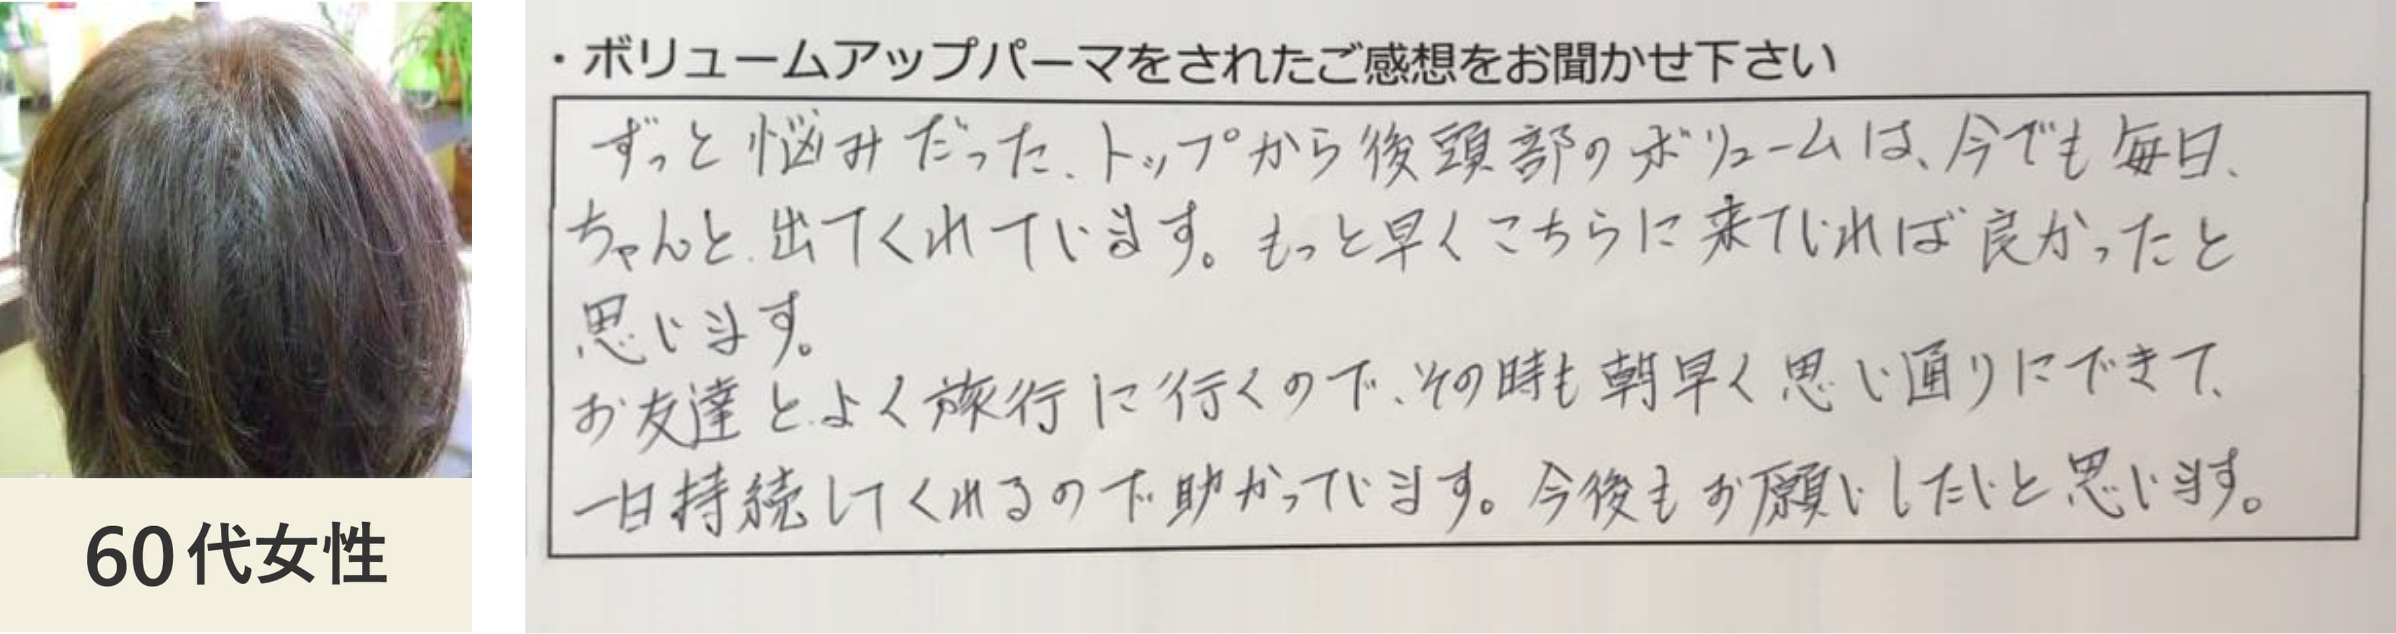 60代女性
・ボリュームアップパーマをされたご感想をお聞かせ下さい
ずっと悩みだった、トップから後頭部のボリュームは、今でも毎日、
ちゃんと出てくれています。もっと早くこちらに来ていれば良かったと
思います。
お友達とよく旅行に行くので、その時も朝早く思い通りにできて、
一日持続してくれるので助かっています。今後もお願いしたいと思います。